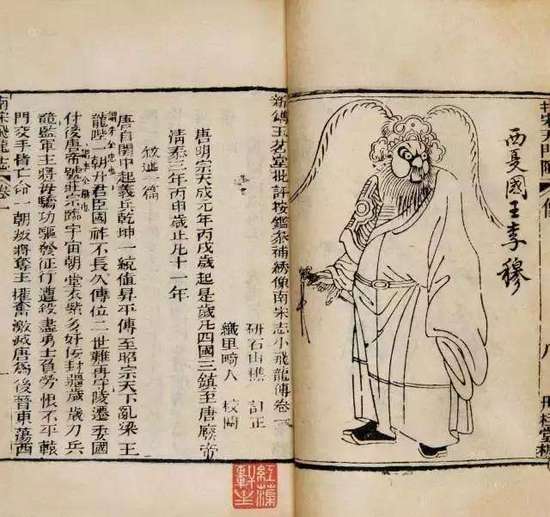 西夏國王李穆
新鐫玉茗堂批評按鑑參補綉像南宋志小飛龍傳卷
研石山樵 訂正
織里畸人 校閱
唐明宗天成元年丙戌歲起是歲凡四國三鎮至唐廢帝
清泰三年丙申歲止凡十一年
敘述篇
唐自關中起義兵乾坤一統値昇平傳至昭宗天下亂梁王
龍陛一朝升君臣國祚不長久傳位二世難再守陵遷委國
付後唐帝號莊宗臨宇宙朝堂衣紫多奸佞封疆歲歲刀兵
監軍主將毎驕功驅發征行遭殺盡勇士負勞恨不平轅
門交手皆亡命一朝叛將奪王權奮激滅唐爲後晉東蕩西